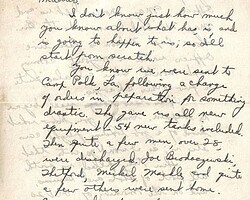 I don't know just how much
you know about what has is and
is going to happen to us, so I'll
start from scratch.
You know we were sent to
Camp Polk, La, following a change
of orders in preparation for something
drastic. They gave us all new
equipment - 54 new tanks included.
Then quite a few men, over 28
were discharged. Joe
and quite
a few others were sent home.